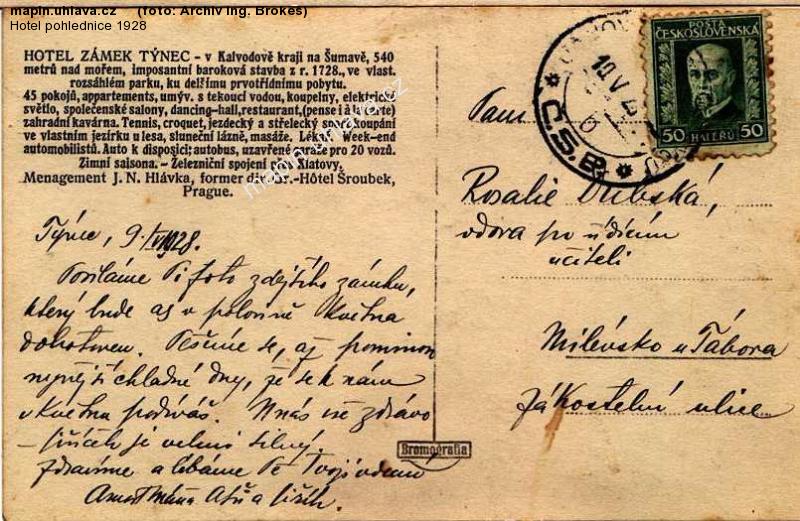 mapin.uhlava.cz (foto: Archiv ing. Brokeš)
Hotel pohlednice 1928
HOTEL ZÁMEK TÝNEC - v Kalvodově kraji na Šumavě, 540
metrů nad mořem, imposantní baroková stavba z r. 1728., ve vlast.
rozsáhlém parku, ku delšímu prvotřídnímu pobytu.
45 pokojů, appartements, umýv. s tekoucí vodou, koupelny, elektrické
světlo, společenské salony, dancing-hall, restaurant, (pense i à la carte)
zahradní kavárna. Tennis, croquet, jezdecký a střelecký sport, koupání
ve vlastním jezírku u lesa, sluneční lázně, masáže. Lékař. Week-end
automobilistů. Auto k disposici; autobus, uzavřené garáže pro 20 vozů.
Zimní saisona. - Železniční spojení přes Klatovy.
Menagement J. N. Hlávka, former dir. Gr.-Hôtel Šroubek,
Prague.
mapin.uhlava.cz
POŠTA
ČESKOSLOVENSKÁ
50 HALÉŘŮ 50
Č.S.R.
10 V
Týnec, 9./V 1928.
Posíláme Ti foto zdejšího zámku,
který bude as v polovině května
dohotoven. Těšíme se, až pominou
nynější chladné dny, že se k nám
v květnu podíváš. U nás vše zdrávo
- Jiříček je velmi silný.
Zdravíme a líbáme Tě Tvoji
a Jiřík.
Paní
Rosalie Dubská,
vdova po řídícím
učiteli
Milevsko u Tábora
Za Kostelní ulice
Bromografia